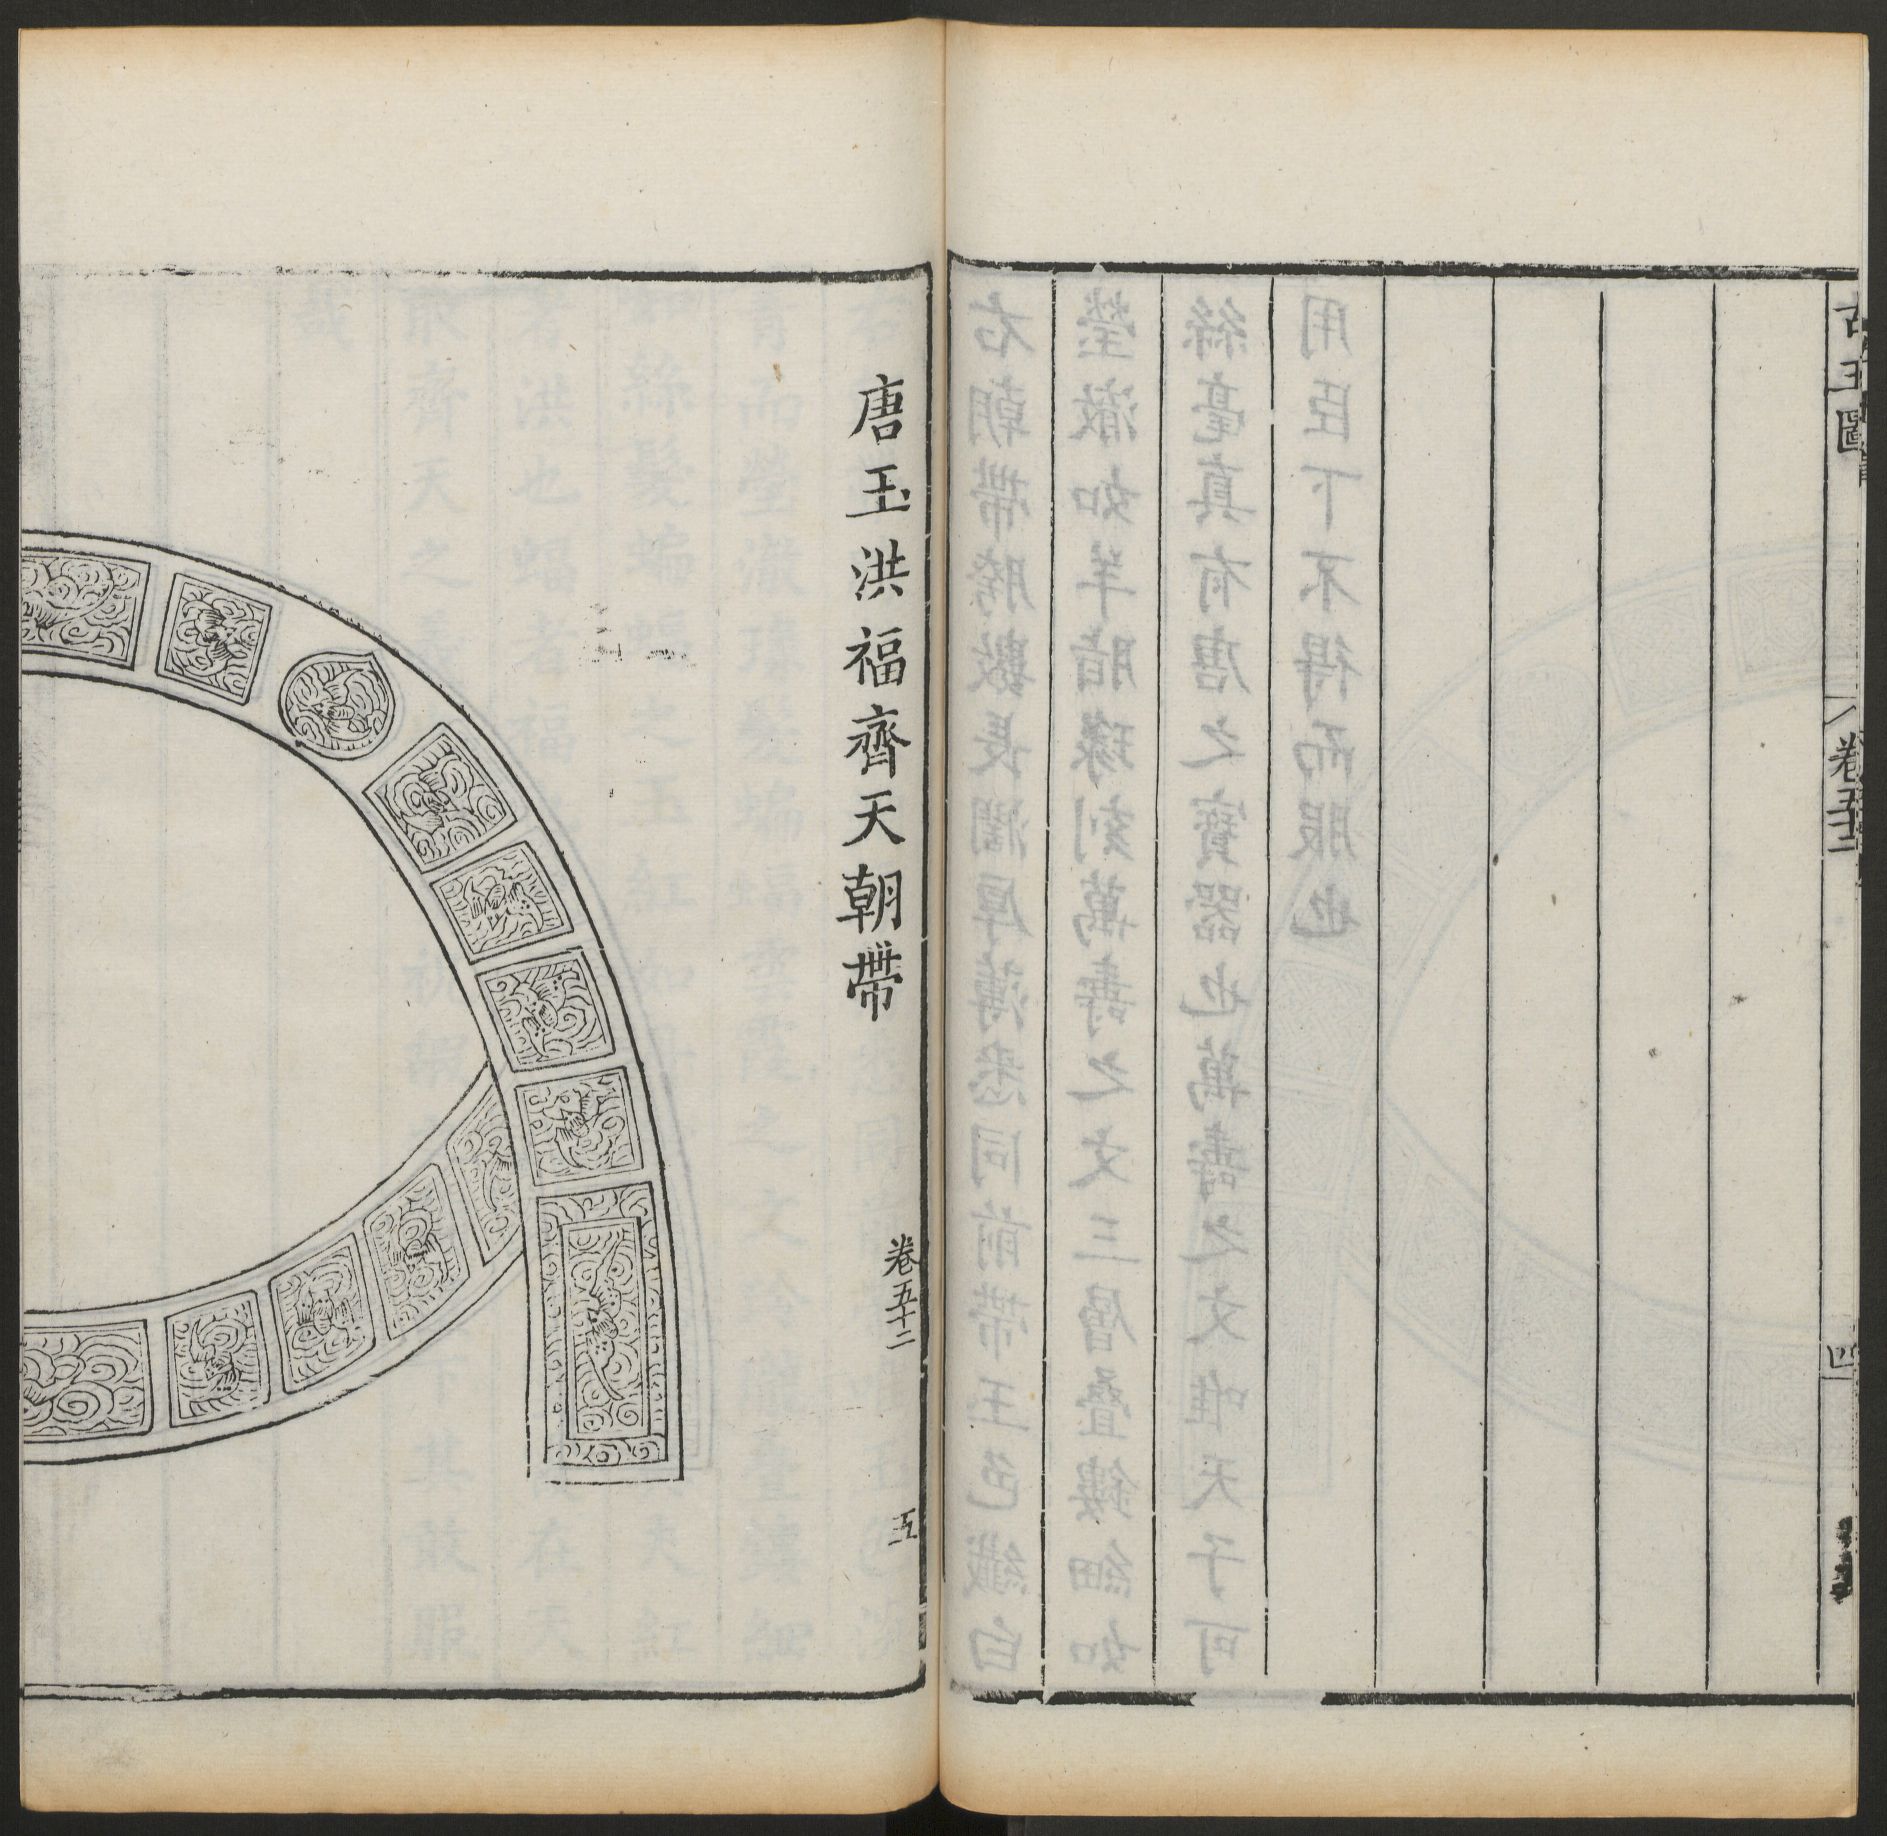 古玉圖
卷五十二
四
唐玉洪福齊天朝帶
卷五十二
五